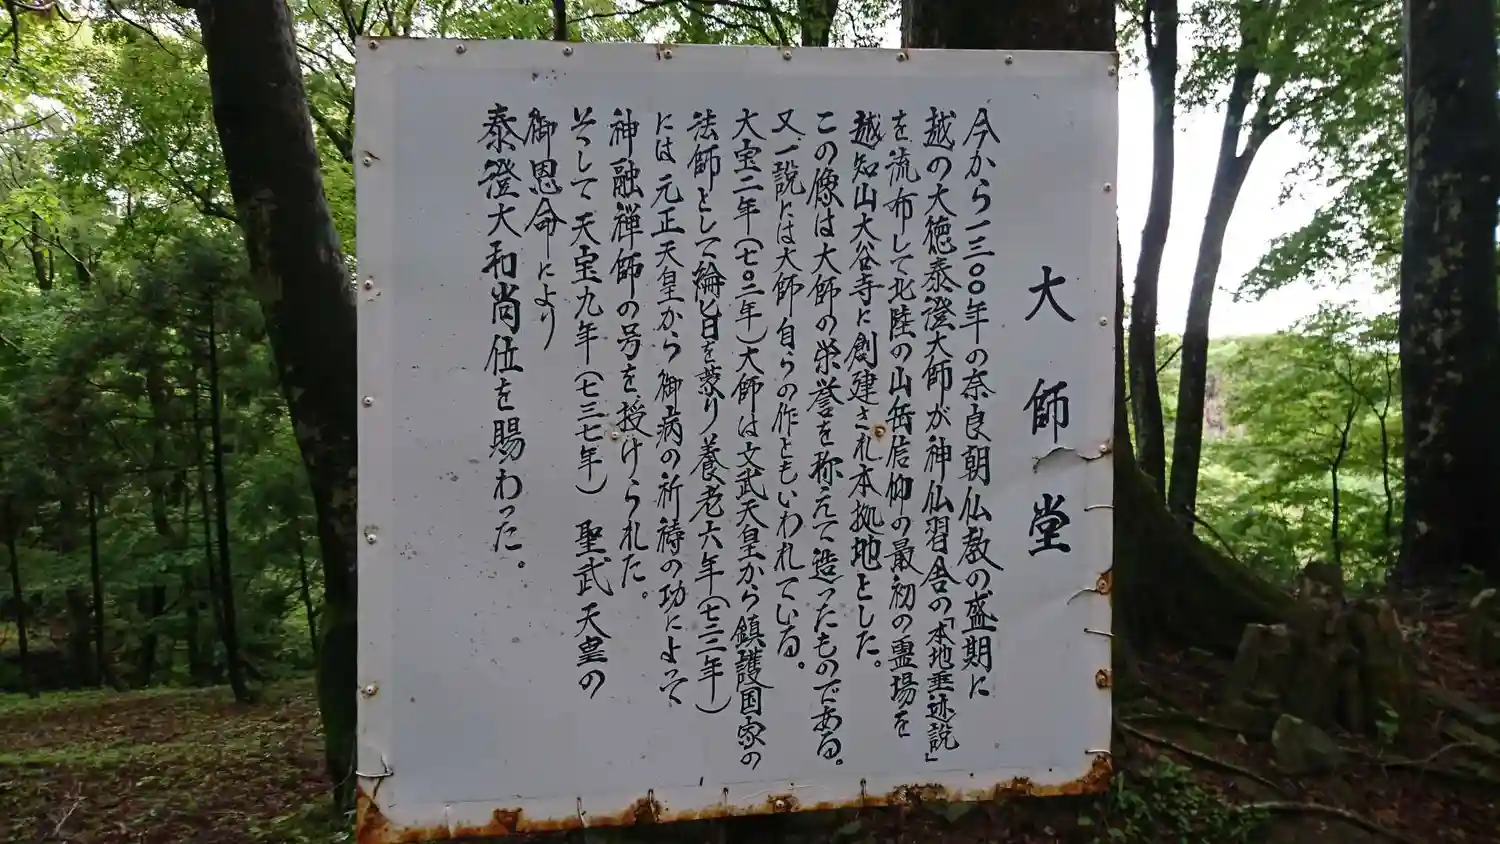 大師堂
今から一三〇〇年の奈良朝仏教の盛期に
越の大徳泰澄大師が神仏習合の「本地垂迹説」
を流布して北陸の山岳信仰の最初の霊場を
越知山大谷寺に創建され本拠地とした。
この像は大師の栄誉を称えて造ったものである。
又一説には大師自らの作ともいわれている。
大宝二年(七〇二年)大師は文武天皇から鎮護国家の
法師として綸旨を蒙り養老六年(七二二年)
には元正天皇から御病の祈祷の功によって
神融禅師の号を授けられた。
そして天宝九年(七三七年) 聖武天皇の
御恩命により
泰澄大和尚位を賜わった。